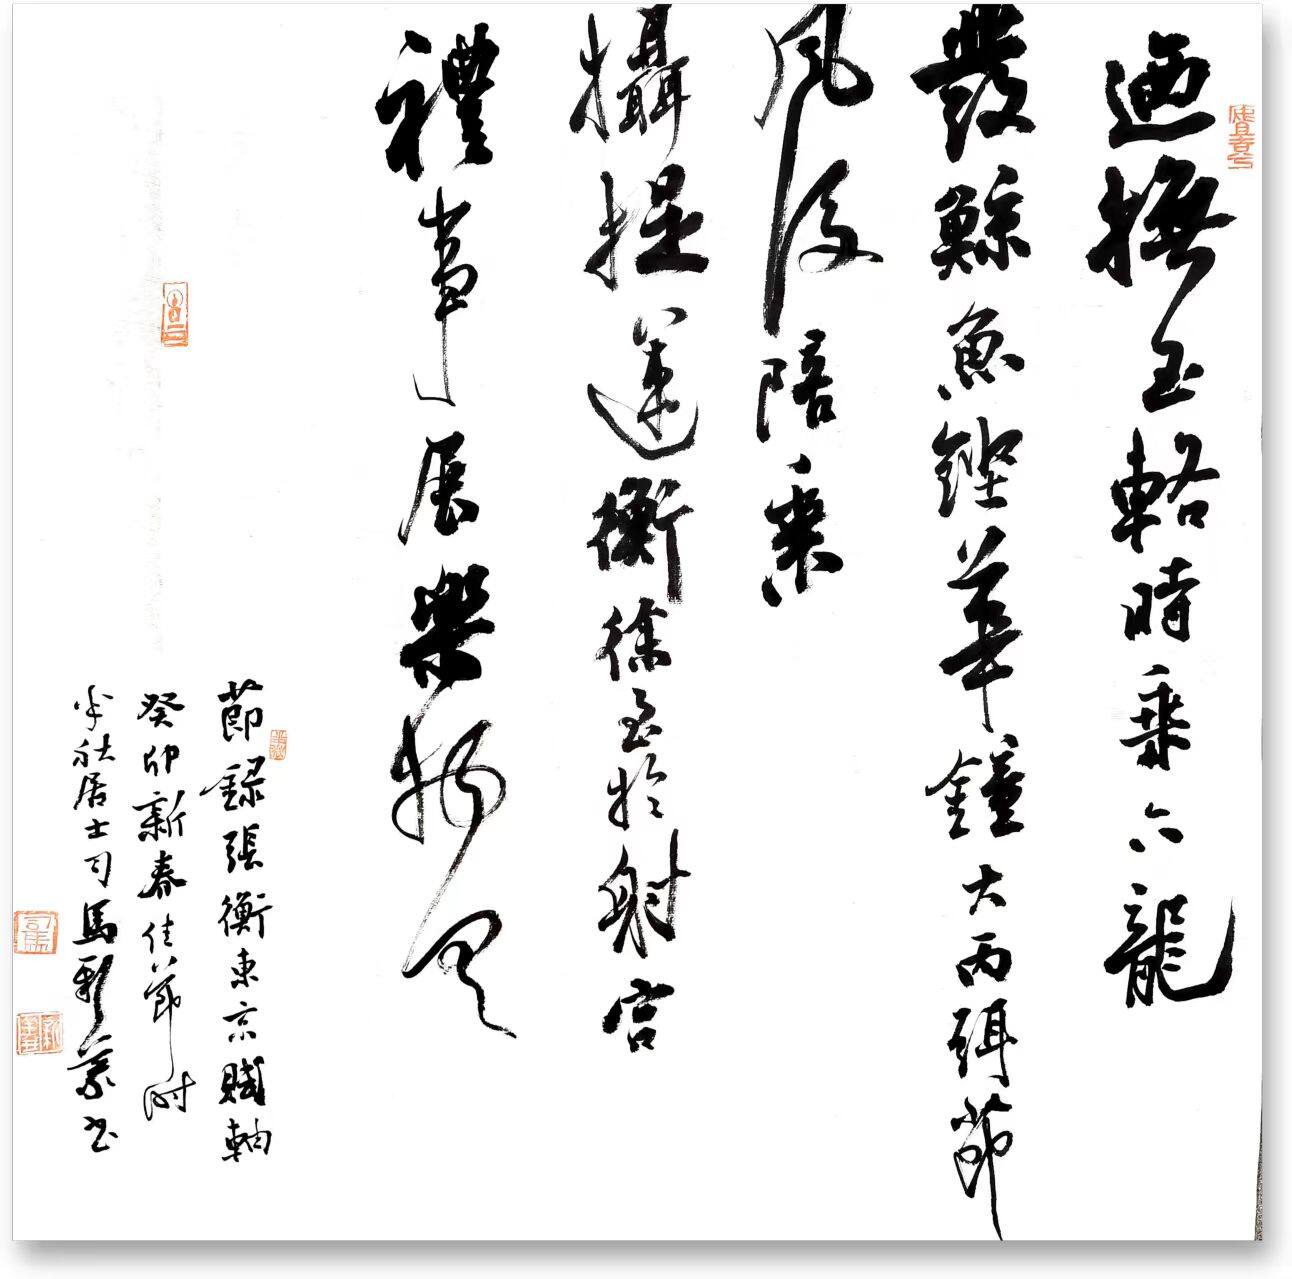 迺撫玉輅時乘六龍
發鯨魚鏗華鐘大丙弭節
風后陪乘
攝提運衡徐至於射宮
禮事展樂物具
節錄張衡東京賦軸
癸卯新春佳節時
半社居士司馬彰義書